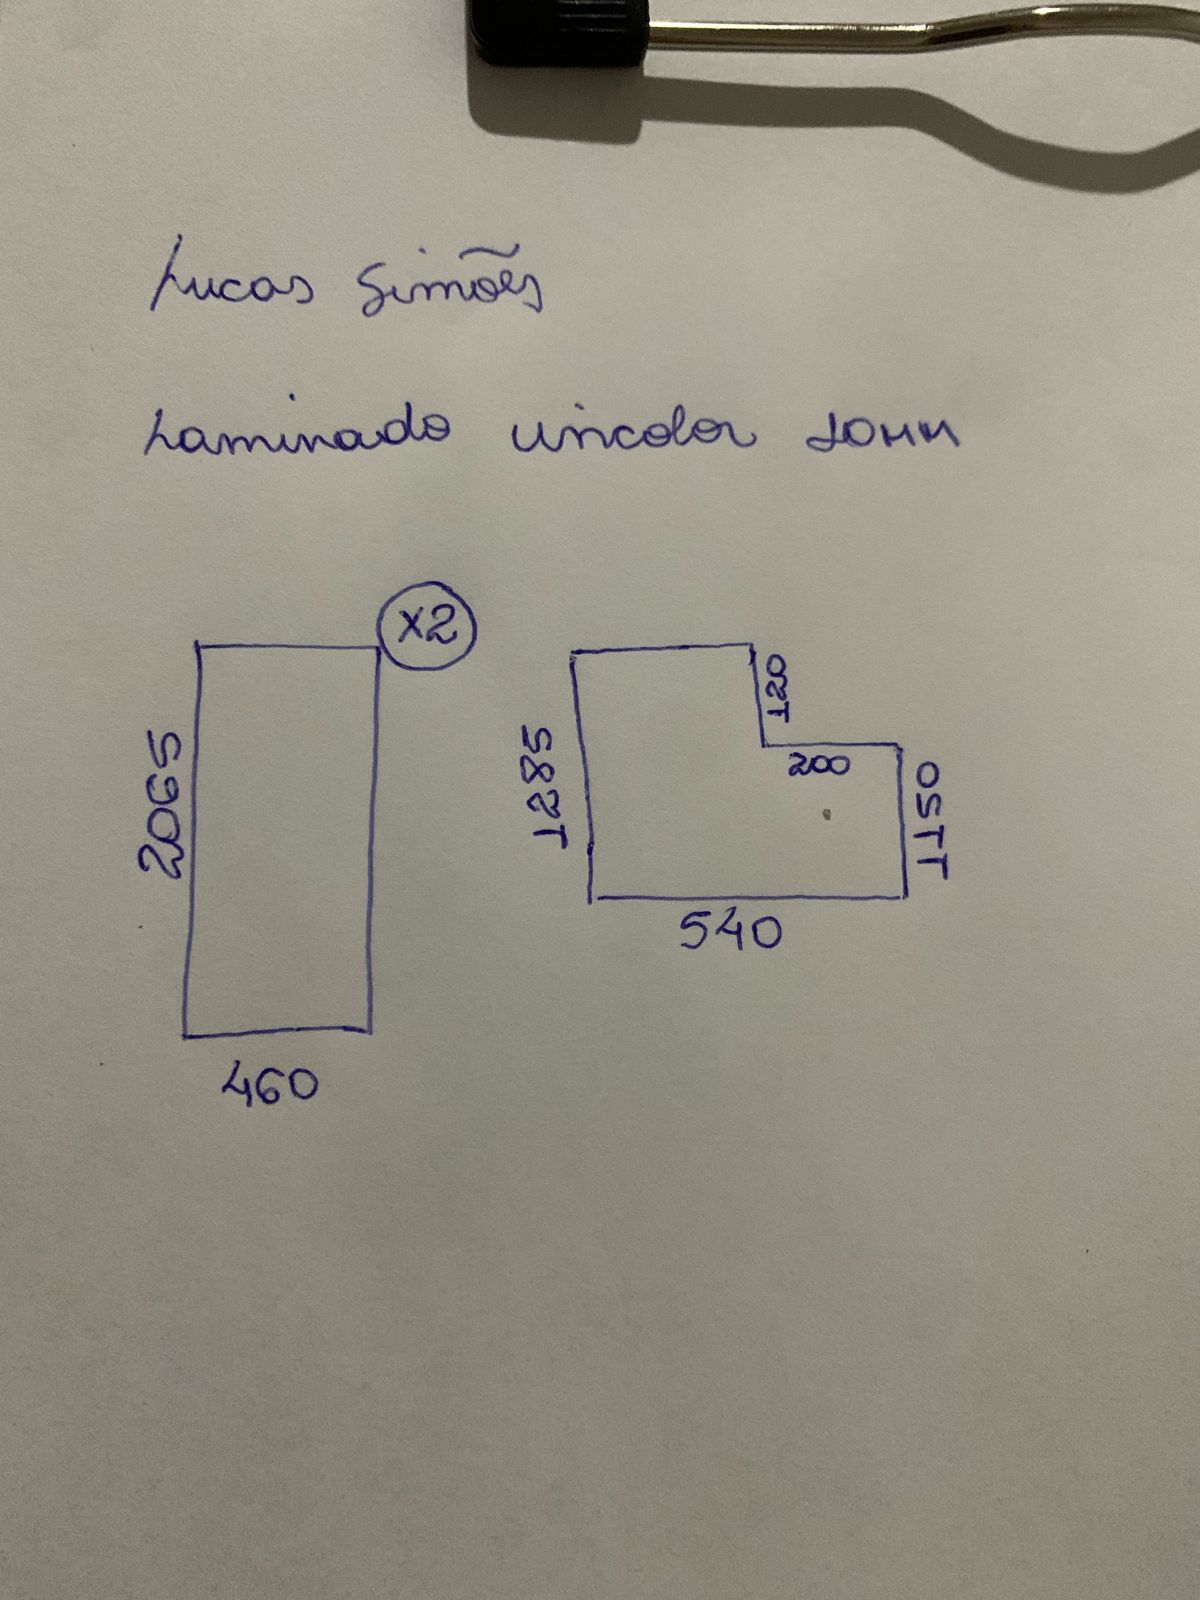 Lucas Simões
Laminado incolor 10mm
x2
2065
460
1285
120
200
1150
540